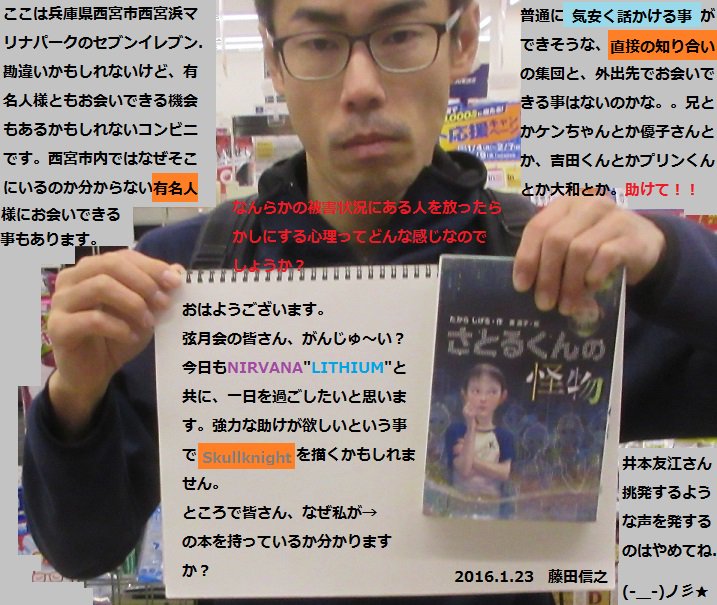 ここは兵庫県西宮市西宮浜マ
リナパークのセブンイレブン.
勘違いかもしれないけど、有
名人様ともお会いできる機会
もあるかもしれないコンビニ
です。西宮市内ではなぜそこ
にいるのか分からない有名人
様にお会いできる
事もあります。
普通に 気安く話かける事 が
できそうな、直接の知り合い
の集団と、外出先でお会いで
きる事はないのかな。。兄と
かケンちゃんとか優子さんと
か、吉田くんとかプリンくん
とか大和とか。助けて！！
応援キャン
なんらかの被害状況にある人を放ったら
かしにする心理ってどんな感じなので
しょうか？
おはようございます。
弦月会の皆さん、がんじゅ～い？
今日もNIRVANA"LITHIUM"と
共に、一日を過ごしたいと思いま
す。強力な助けが欲しいという事
で Skullknight を描くかもしれま
せん。
ところで皆さん、なぜ私が→
の本を持っているか分かります
か？
2016.1.23　藤田信之
たからしげる・作
さとるくんの
怪物
井本友江さん
挑発するよう
な声を発する
のはやめてね.
(-__-)ノ彡★